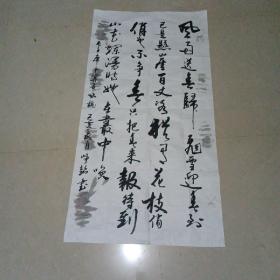 風雨送春歸 飛雪迎春到
已是懸崖百丈冰 猶有花枝俏
俏也不争春 只把春来報 待到
山花爛漫時 她在叢中笑